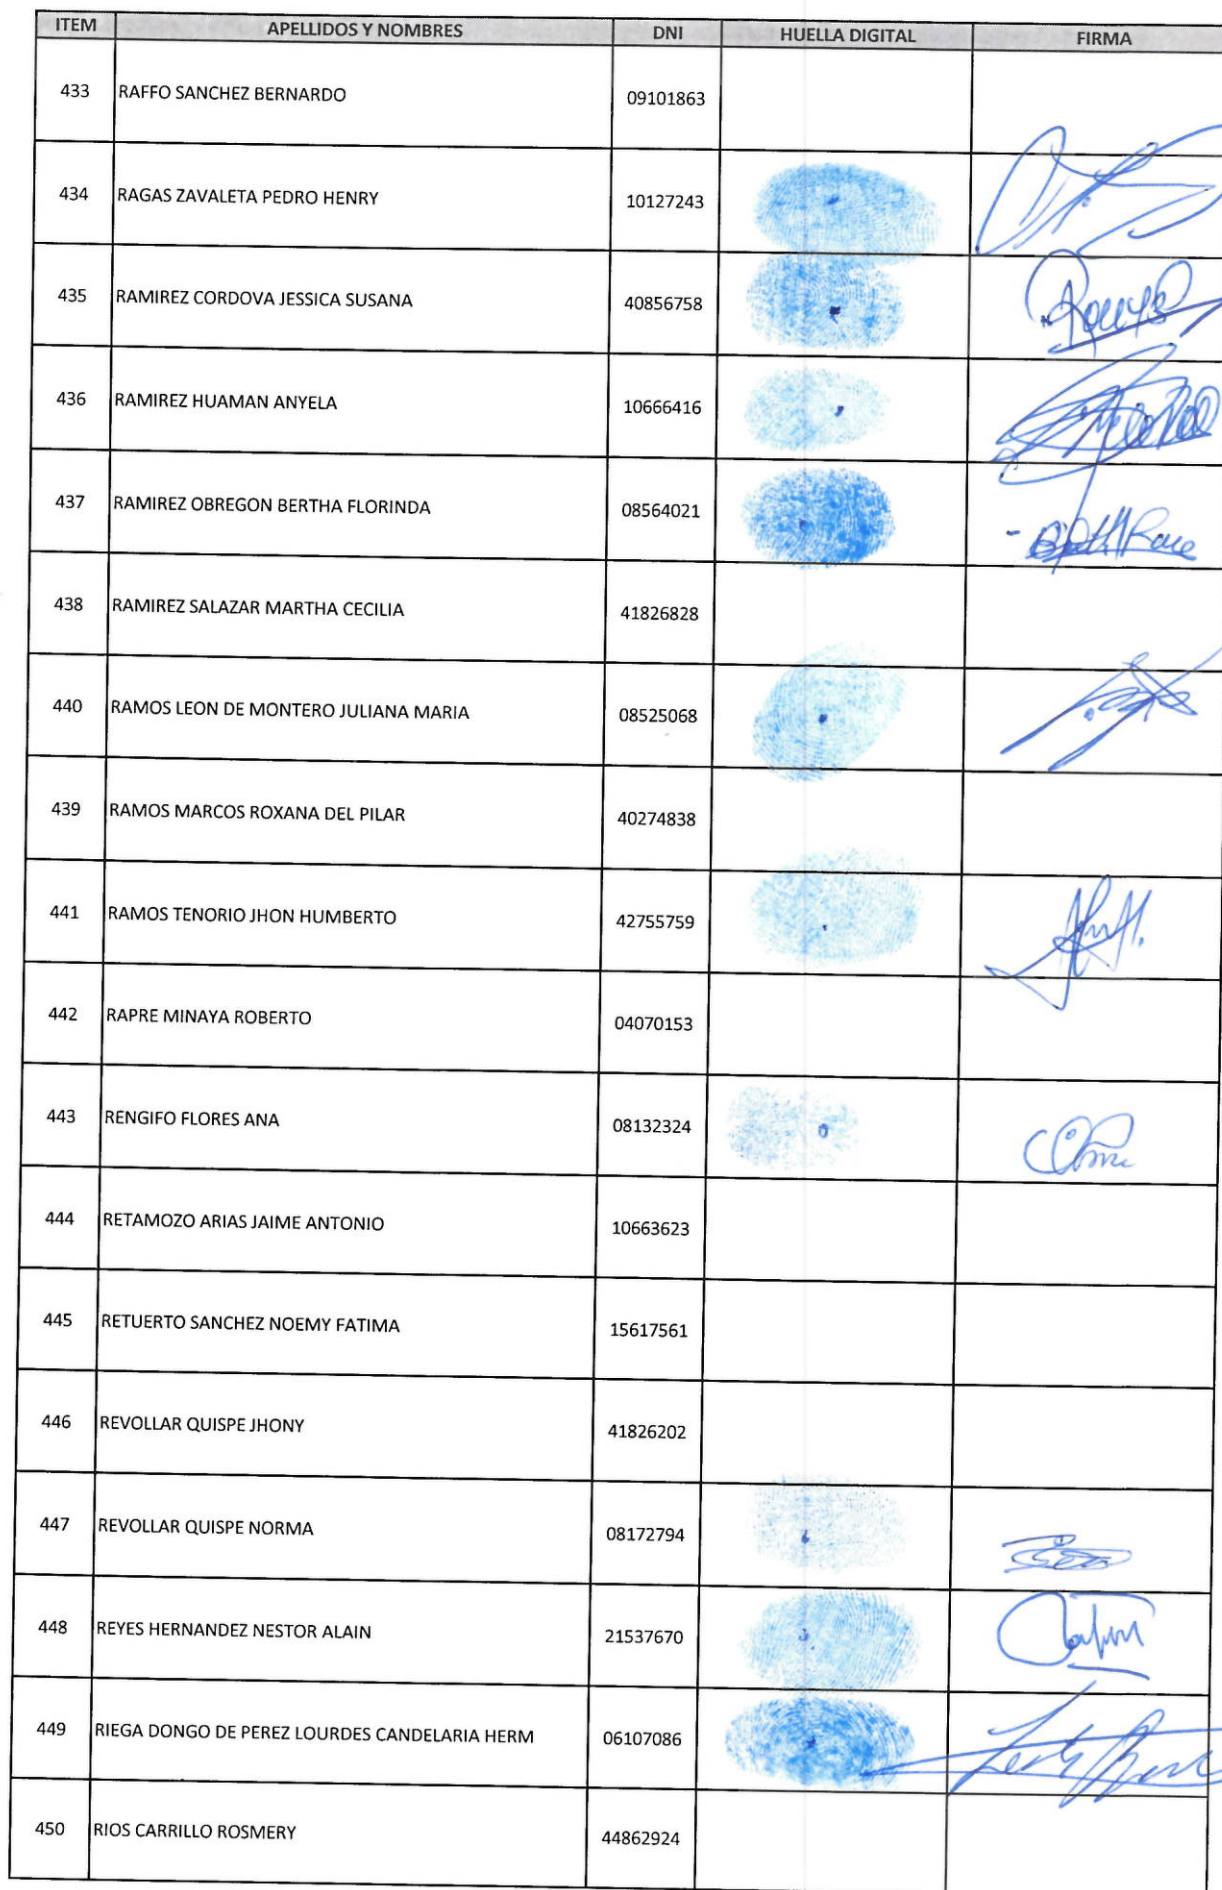 ITEM APELLIDOS Y NOMBRES DNI HUELLA DIGITAL FIRMA
433 RAFFO SANCHEZ BERNARDO 09101863
434 RAGAS ZAVALETA PEDRO HENRY 10127243
435 RAMIREZ CORDOVA JESSICA SUSANA 40856758
436 RAMIREZ HUAMAN ANYELA 10666416
437 RAMIREZ OBREGON BERTHA FLORINDA 08564021
438 RAMIREZ SALAZAR MARTHA CECILIA 41826828
440 RAMOS LEON DE MONTERO JULIANA MARIA 08525068
439 RAMOS MARCOS ROXANA DEL PILAR 40274838
441 RAMOS TENORIO JHON HUMBERTO 42755759
442 RAPRE MINAYA ROBERTO 04070153
443 RENGIFO FLORES ANA 08132324
444 RETAMOZO ARIAS JAIME ANTONIO 10663623
445 RETUERTO SANCHEZ NOEMY FATIMA 15617561
446 REVOLLAR QUISPE JHONY 41826202
447 REVOLLAR QUISPE NORMA 08172794
448 REYES HERNANDEZ NESTOR ALAIN 21537670
449 RIEGA DONGO DE PEREZ LOURDES CANDELARIA HERM 06107086
450 RIOS CARRILLO ROSMERY 44862924